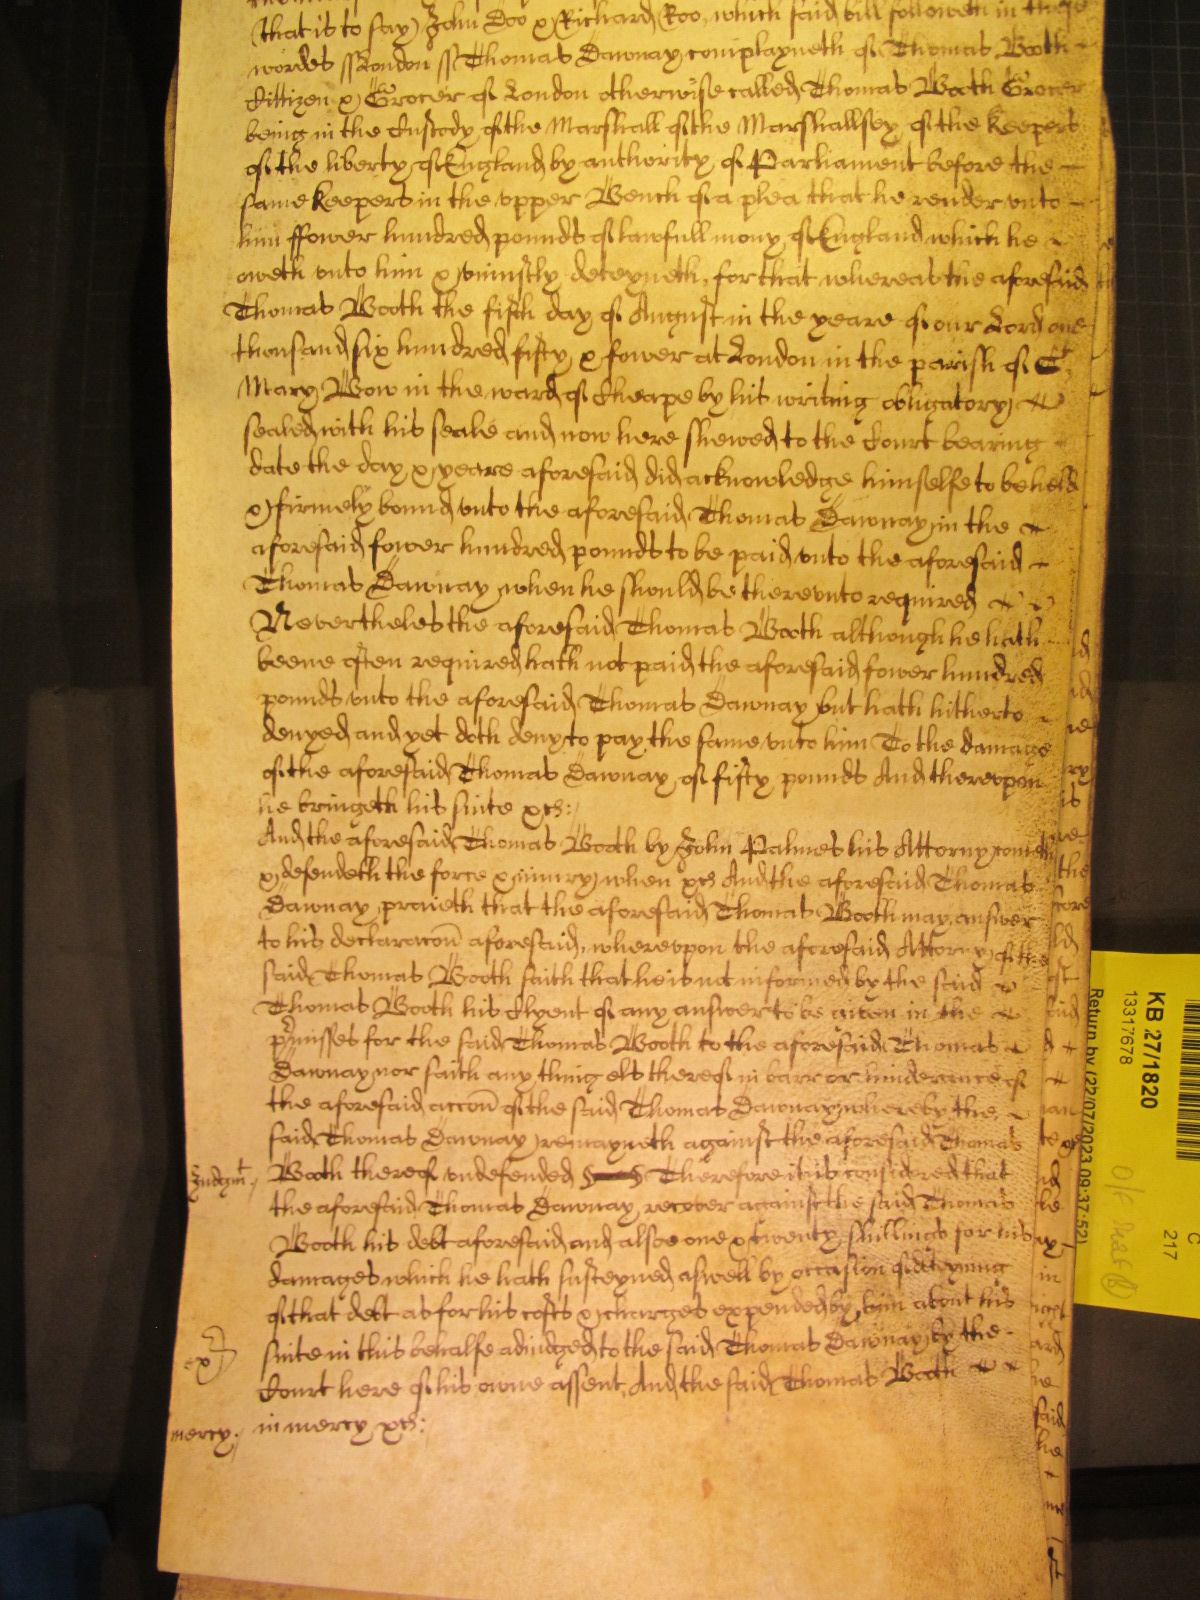 (that is to say) John Doo & Richard Roo, which said bill followeth in these
wordes ss London ss Thomas Dawnay complayneth of Thomas Wooth
Cittizen & Grocer of London otherwise called Thomas Wooth Grocer
being in the Custody of the Marshall of the Marshallsey of the Keepers
of the liberty of England by authority of Parliament before the
same Keepers in the upper Bench of a plea that he render unto
him ffower hundred pounds of lawfull mony of England which he
oweth unto him & uniustly deteyneth, for that whereas the aforesaid
Thomas Wooth the fifth day of August in the yeare of our Lord one
thousand six hundred fifty & fower at London in the parish of St
Mary Bow in the ward of Cheape by his writing obligatory
sealed with his seale and now here shewed to the Court bearing
date the day & yeare aforesaid did acknowledge himselfe to be held
& firmely bound unto the aforesaid Thomas Dawnay in the
aforesaid fower hundred pounds to be paid unto the aforesaid
Thomas Dawnay when he should be thereunto required
Nevertheles the aforesaid Thomas Wooth although he hath
beene often required hath not paid the aforesaid fower hundred
pounds unto the aforesaid Thomas Dawnay but hath hitherto
denyed and yet doth deny to pay the same unto him To the damage
of the aforesaid Thomas Dawnay of fifty pounds And thereupon
he bringeth his suite &c:
And the aforesaid Thomas Wooth by John Palmes his Attorny cometh
& defendeth the force & iniury when &c And the aforesaid Thomas
Dawnay praieth that the aforesaid Thomas Wooth may answer
to his declaracon aforesaid, whereupon the aforesaid Attorny of the
said Thomas Wooth saith that he is not informed by the said
Thomas Wooth his Clyent of any answer to be given in the
p'misses for the said Thomas Wooth to the aforesaid Thomas
Dawnay nor saith any thing els thereof in barr or hinderance of
the aforesaid accon of the said Thomas Dawnay, whereby the
said Thomas Dawnay remayneth against the aforesaid Thomas
Judgmt Wooth thereof undefended Therefore it is considered that
the aforesaid Thomas Dawnay recover against the said Thomas
Wooth his debt aforesaid and alsoe one & twenty shillings for his
damages which he hath susteyned aswell by occasion of deteyning
of that debt as for his costs & charges expended by him about his
ex suite in this behalfe adiudged to the said Thomas Dawnay by the
Court here of his owne assent, And the said Thomas Wooth
mercy in mercy &c:
KB 27/1820
13317678
Return by (22/07/2023 09:37:52)
C
217